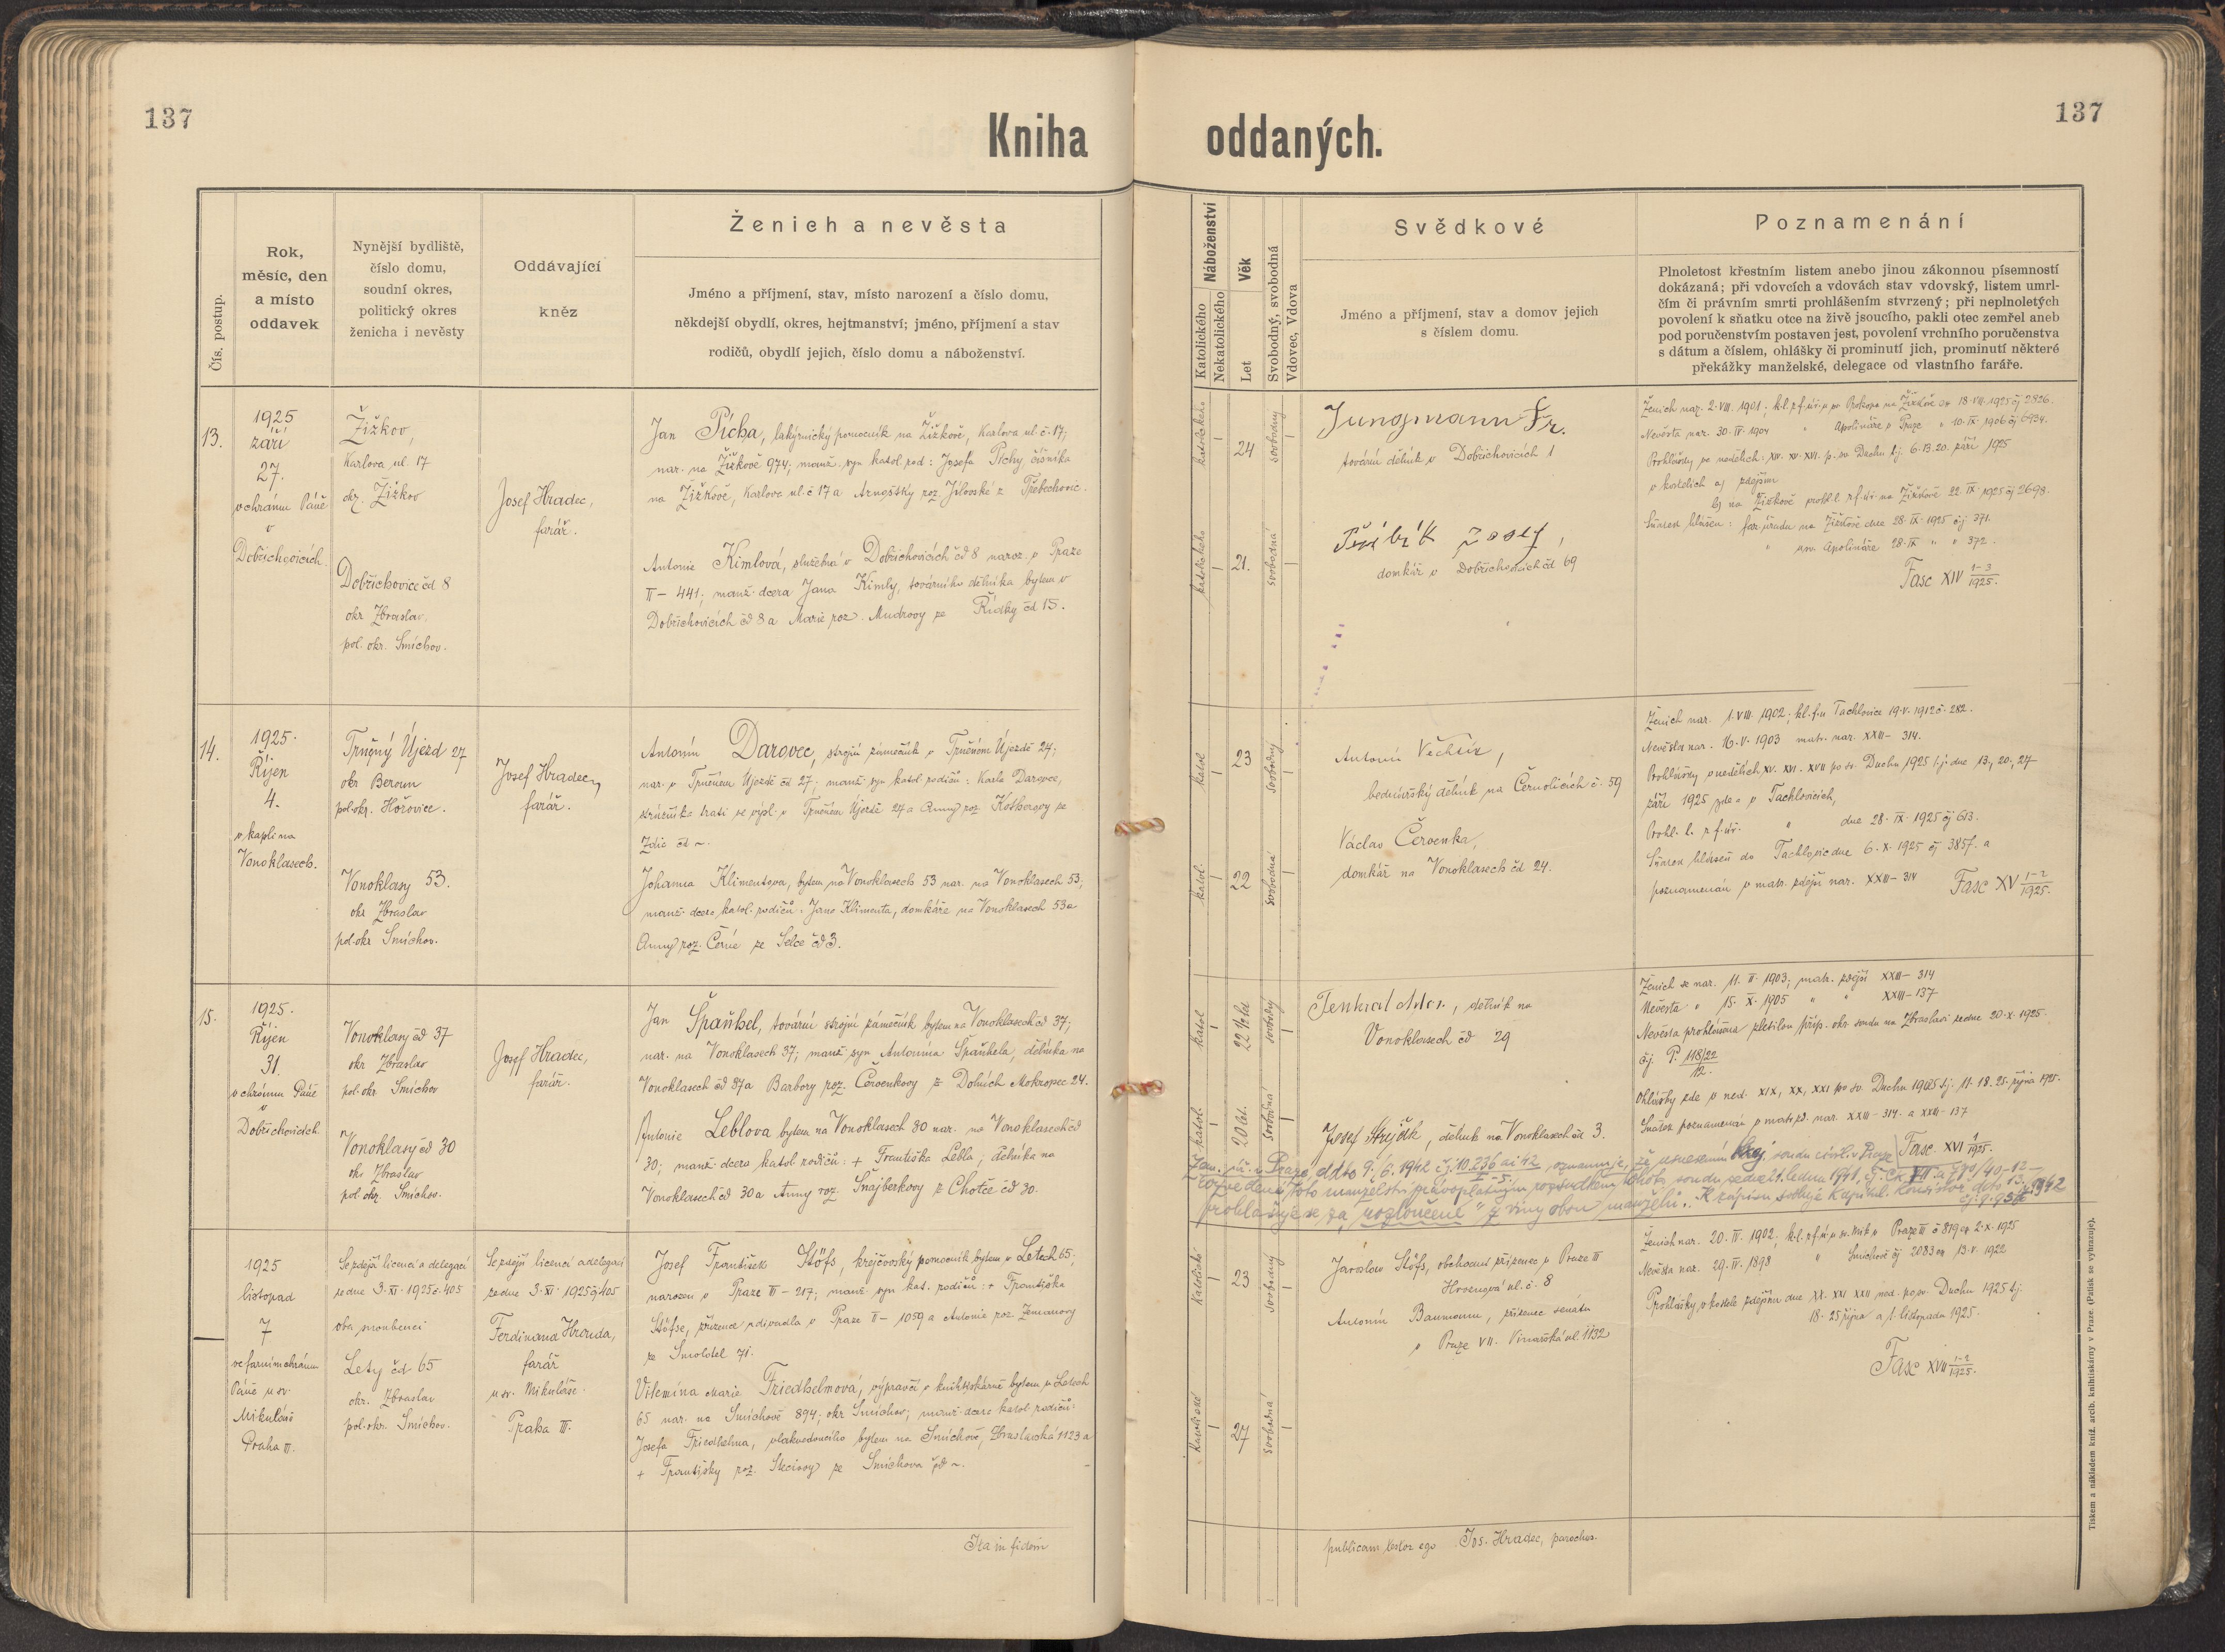 137
137
Kniha oddaných.
Čís. postup.
Rok,
měsíc, den
a místo
oddavek
Nynější bydliště,
číslo domu,
soudní okres,
politický okres
ženicha i nevěsty
Oddávající
kněz
Ženich a nevěsta
Jméno a příjmení, stav, místo narození a číslo domu,
někdejší obydlí, okres, hejtmanství; jméno, příjmení a stav
rodičů, obydlí jejich, číslo domu a náboženství.
Náboženství
Katolického
Nekatolického
Věk
Let
Svobodný, svobodná
Vdovec, Vdova
Svědkové
Jméno a příjmení, stav a domov jejich
s číslem domu.
Poznamenání
Plnoletost křestním listem anebo jinou zákonnou písemností
dokázaná; při vdovcích a vdovách stav vdovský, listem umrl-
čím či právním smrti prohlášením stvrzený; při neplnoletých
povolení k sňatku otce na živě jsoucího, pakli otec zemřel aneb
pod poručenstvím postaven jest, povolení vrchního poručenstva
s dátum a číslem, ohlášky či prominutí jich, prominutí některé
překážky manželské, delegace od vlastního faráře.
13.
1925
září
27.
v chrámu Páně
v
Dobřichovicích.
Žižkov,
Karlova ul. 17
okr. Žižkov
Dobřichovice čd 8
okr Zbraslav.
pol. okr. Smíchov.
Josef Hradec,
farář.
Jan Pícha, lakýrnický pomocník na Žižkově, Karlova ul. č. 17;
nar. na Žižkově 974; manž. syn katol. rod: Josefa Píchy číšníka
na Žižkově, Karlova ul. č 17 a roz. Jílovské z Třebechovic.
Antonie Kimlová, služebná v Dobřichovicích čd 8 naroz. v Praze
II – 441; manž. dcera Jana Kimly, továrního dělníka bytem v
Dobřichovicích čd 8 a Marie roz. Mudrovy ze Řídky čd 15.
katolického
24
svobodný
katolického
21.
svobodná
Jungmann Fr.
tovární dělník v Dobřichovicích 1
Přibík Josef,
domkář v Dobřichovicích čd 69
Ženich nar. 2. VIII. 1901; k.l. z f. úř. u sv Prokopa na Žižkově 18. VIII. 1925 čj 2826.
Nevěsta nar. 30. IV. 1904 " Apolináře v Praze " 10. IX. 1906 čj 6934.
Prohlášky po nedělích: XIV. XV. XVI. p. sv. Duchu t.j. 6. 13. 20. září 1925
v kostelích a) zdejším
b) na Žižkově prohl. l. z f. úř. na Žižkově 22. IX. 1925 čj 2698.
Sňatek hlášen: far. úřadu na Žižkově dne 28. IX. 1925 čj 371.
" u sv. Apolináře 28. IX " " 372.
Fasc XIV 1-3/1925.
14.
1925.
Říjen
4.
v kapli na
Vonoklasech.
Trněný Újezd 27
okr Beroun
pol. okr. Hořovice.
Vonoklasy 53.
okr Zbraslav
pol. okr. Smíchov.
Josef Hradec,
farář.
Antonín Darovec, strojní zámečník v Trněném Újezdě 24;
nar. v Trněném Újezdě čd 27; manž. syn katol rodičů: Karla Darovce,
strážníka trati ve výsl. v Trněném Újezdě 24 a Anny roz. ze
Zdic čd ~.
Johanna Klimentova, bytem na Vonoklasech 53 nar. na Vonoklasech 53;
manž. dcera katol. rodičů: Jana Klimenta, domkáře na Vonoklasech 53 a
Anny roz. Černé ze Selce čd 3.
katol.
23
svobodný
katol.
22
svobodná
Antonín,
bednářský dělník na Černolicích č. 59
Václav Červenka,
domkář na Vonoklasech čd 24.
Ženich nar. 1. VIII. 1902; k.l. f.ú Tachlovice 19. V. 1912 č. 282.
Nevěsta nar. 16. V. 1903 matr. nar. XXIII – 314.
Prohlášky v nedělích XV. XVI. XVII po sv. Duchu 1925 t.j. dne 13., 20., 27
září 1925 zde a v Tachlovicích,
Prohl. l. z f. úř. " dne 28. IX. 1925 čj 613.
Sňatek hlášen do Tachlovic dne 6. X. 1925 čj 3857. a
poznamenán v matr. zdejší nar. XXIII – 314 Fasc XV 1-2/1925.
15.
1925.
Říjen
31.
v chrámu Páně
v
Dobřichovicích
Vonoklasy čd 37
okr Zbraslav
pol. okr Smíchov
Vonoklasy čd 30
okr Zbraslav
pol. okr. Smíchov.
Josef Hradec,
farář.
Jan Španhel, tovární strojní zámečník bytem na Vonoklasech čd 37;
nar. na Vonoklasech 37; manž. syn Antonína Španhela, dělníka na
Vonoklasech čd 37 a Barbory roz. Červenkovy z Dolních Mokropec 24.
Antonie Leblova bytem na Vonoklasech 30 nar. na Vonoklasech čd
30; manž. dcera, katol rodičů: + Františka Lebla, dělníka na
Vonoklasech čd 30 a Anny roz. Šnajberkovy z Chotče čd 30.
katol
22 ½ let
svobodný
katol.
20 let.
svobodná
Tenkrat, dělník na
Vonoklasech čd 29
Josef Strejček, dělník na Vonoklasech čd 3.
Ženich se nar. 11. II. 1903; matr. zdejší XXIII – 314
Nevěsta " 15. X. 1905 " " XXIII – 137
Nevěsta prohlášena zletilou příp. okr soudu na Zbraslavi ze dne 20. X. 1925.
čj. P. 118/22
12.
Ohlášky zde v ned. XIX, XX, XXI po sv. Duchu 1925 t.j. 11. 18. 25. října 1925.
Sňatek poznamenán v matr. zd. nar. XXIII – 314. a XXIII – 137
Fasc. XVI 1/1925.
Zem. úř. v Praze ddto 9./6. 1942 čj. 10.236 ai 42, oznamuje, že usnesením kraj. soudu civil. v Praze
rozvedené toto manželství pravoplatným rozsudkem tohoto soudu ze dne 21. ledna 1941, čj. Ck VII a 790/40-12 –
prohlašuje se za „rozloučené" z viny obou manželů. K zápisu svoluje Kapitul. Konsistoř dto 13. 1942
1925
listopad
7
ve farním chrámu
Páně u sv.
Mikuláše
Praha III.
Se zdejší licencí a delegací
ze dne 3. XI. 1925 č. 405
oba snoubenci
Lety čd 65
okr. Zbraslav
pol. okr. Smíchov.
Se zdejší licencí a delegací
ze dne 3. XI. 1925 čj 405
Ferdinand Hrouda,
farář
u sv. Mikuláše
Praha III.
Josef František Stöfs, krejčovský pomocník bytem v Letech 65;
narozen v Praze III – 217; manž. syn kat. rodičů: + Františka
Stöfse, zřízence u divadla v Praze II – 1059 a Antonie roz. Zemanovy
ze Smolotel 71.
Vilemína Marie Friedhelmová, výpravčí v knihtiskárně bytem v Letech
65 nar. na Smíchově 894; okr Smíchov; manž. dcera katol. rodičů:
Josefa Friedhelma, vlakvedoucího bytem na Smíchově, Zbraslavská 1123 a
+ Františky roz. ze Smíchova čd ~.
katolické
23
svobodný
katolické
27
svobodná
Jaroslav Stöfs, obchodní příručí v Praze III
ul. č. 8
Antonín Baumann, zřízenec senátu
v Praze VII. Vinařská ul. 1132
Ženich nar. 20. II. 1902; k.l. z f. ú. u sv. Mik v Praze III č 819 2. X. 1925
Nevěsta nar. 29. IV. 1898 " Smíchově čj 2083 13. V. 1922
Prohlášky v kostele zdejším dne XX. XXI XXII ned. po sv. Duchu 1925 t.j.
18. 25 října a 1. listopadu 1925.
Fasc XVII 1-2/1925.
Ita in fidem
publicam testor ego Jos. Hradec, parochus.
Tiskem a nákladem kníž. arcib. knihtiskárny v Praze (Patisk se vyhrazuje).